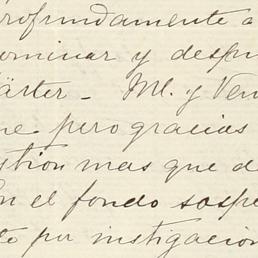 profundamente a
terminar y despu
Kärter_ Ml. y Ven
ne pero gracias
stion mas que de
En el fondo sospe
to por instigacion